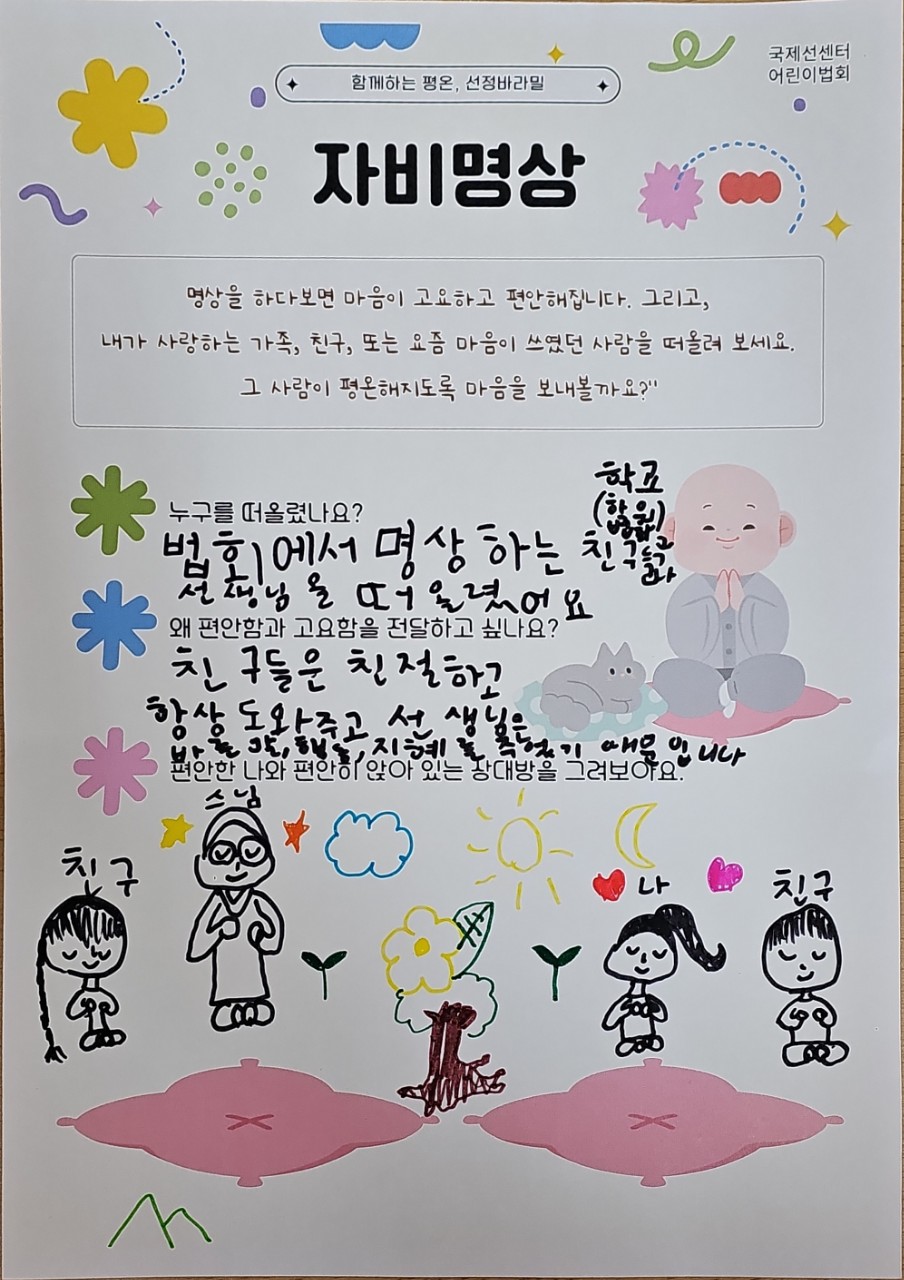 국제선센터
어린이법회
함께하는 평온, 선정바라밀
자비명상
명상을 하다보면 마음이 고요하고 편안해집니다. 그리고,
내가 사랑하는 가족, 친구, 또는 요즘 마음이 쓰였던 사람을 떠올려 보세요.
그 사람이 평온해지도록 마음을 보내볼까요?"
누구를 떠올렸나요?
학교
법회에서 명상하는 친구들과
선생님을 떠올렸어요
왜 편안함과 고요함을 전달하고 싶나요?
친구들은 친절하고
항상 도와주고, 선생님은
지혜를 주었기 때문입니다
편안한 나와 편안히 앉아 있는 상대방을 그려보아요.
스님
친구
나
친구